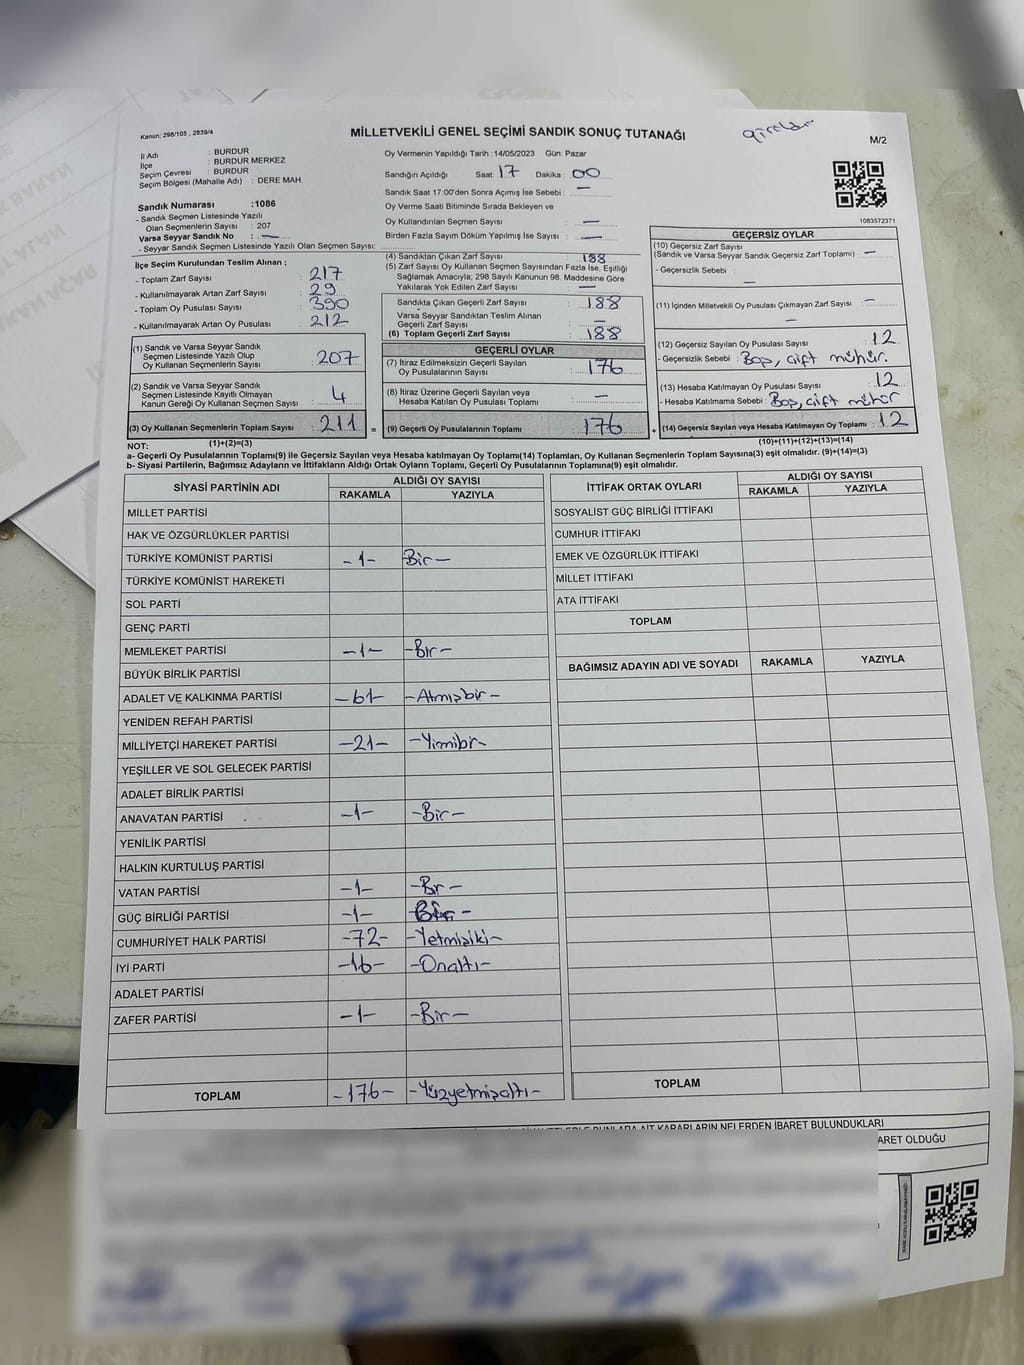 Kanun: 298/105 , 2839/4
MİLLETVEKİLİ GENEL SEÇİMİ SANDIK SONUÇ TUTANAĞI
M/2
İl Adı : BURDUR
İlçe : BURDUR MERKEZ
Seçim Çevresi : BURDUR
Seçim Bölgesi (Mahalle Adı) : DERE MAH.
Oy Vermenin Yapıldığı Tarih :14/05/2023 Gün: Pazar
Sandığın Açıldığı Saat: 17 Dakika: 00
Sandık Saat 17:00'den Sonra Açımış İse Sebebi : —
Oy Verme Saati Bitiminde Sırada Bekleyen ve
Oy Kullandırılan Seçmen Sayısı : —
Birden Fazla Sayım Döküm Yapılmış İse Sayısı : —
1083572371
Sandık Numarası :1086
- Sandık Seçmen Listesinde Yazılı
Olan Seçmenlerin Sayısı : 207
Varsa Seyyar Sandık No : —
- Seyyar Sandık Seçmen Listesinde Yazılı Olan Seçmen Sayısı:
İlçe Seçim Kurulundan Teslim Alınan ;
- Toplam Zarf Sayısı : 217
- Kullanılmayarak Artan Zarf Sayısı : 29
- Toplam Oy Pusulası Sayısı : 390
- Kullanılmayarak Artan Oy Pusulası : 212
(1) Sandık ve Varsa Seyyar Sandık
Seçmen Listesinde Yazılı Olup
Oy Kullanan Seçmenlerin Sayısı : 207
(2) Sandık ve Varsa Seyyar Sandık
Seçmen Listesinde Kayıtlı Olmayan
Kanun Gereği Oy Kullanan Seçmen Sayısı : 4
(3) Oy Kullanan Seçmenlerin Toplam Sayısı : 211 =
(4) Sandıktan Çıkan Zarf Sayısı : 188
(5) Zarf Sayısı Oy Kullanan Seçmen Sayısından Fazla İse, Eşitliği
Sağlamak Amacıyla; 298 Sayılı Kanunun 98. Maddesine Göre
Yakılarak Yok Edilen Zarf Sayısı : —
Sandıkta Çıkan Geçerli Zarf Sayısı : 188
Varsa Seyyar Sandıktan Teslim Alınan
Geçerli Zarf Sayısı : —
(6) Toplam Geçerli Zarf Sayısı : 188
GEÇERLİ OYLAR
(7) İtiraz Edilmeksizin Geçerli Sayılan
Oy Pusulalarının Sayısı : 176
(8) İtiraz Üzerine Geçerli Sayılan veya
Hesaba Katılan Oy Pusulası Toplamı : —
(9) Geçerli Oy Pusulalarının Toplamı : 176 +
GEÇERSİZ OYLAR
(10) Geçersiz Zarf Sayısı
(Sandık ve Varsa Seyyar Sandık Geçersiz Zarf Toplamı) : —
- Geçersizlik Sebebi :
—
(11) İçinden Milletvekili Oy Pusulası Çıkmayan Zarf Sayısı : —
—
(12) Geçersiz Sayılan Oy Pusulası Sayısı : 12
- Geçersizlik Sebebi : Boş, çift mühür.
(13) Hesaba Katılmayan Oy Pusulası Sayısı : 12
- Hesaba Katılmama Sebebi : Boş, çift mühür
(14) Geçersiz Sayılan veya Hesaba Katılmayan Oy Toplamı : 12
NOT: (1)+(2)=(3) (10)+(11)+(12)+(13)=(14)
a- Geçerli Oy Pusulalarının Toplamı(9) ile Geçersiz Sayılan veya Hesaba katılmayan Oy Toplamı(14) Toplamları, Oy Kullanan Seçmenlerin Toplam Sayısına(3) eşit olmalıdır. (9)+(14)=(3)
b- Siyasi Partilerin, Bağımsız Adayların ve İttifakların Aldığı Ortak Oyların Toplamı, Geçerli Oy Pusulalarının Toplamına(9) eşit olmalıdır.
SİYASİ PARTİNİN ADI ALDIĞI OY SAYISI
RAKAMLA YAZIYLA
MİLLET PARTİSİ
HAK VE ÖZGÜRLÜKLER PARTİSİ
TÜRKİYE KOMÜNİST PARTİSİ -1- Bir-
TÜRKİYE KOMÜNİST HAREKETİ
SOL PARTİ
GENÇ PARTİ
MEMLEKET PARTİSİ -1- -Bir-
BÜYÜK BİRLİK PARTİSİ
ADALET VE KALKINMA PARTİSİ -61- -Atmışbir-
YENİDEN REFAH PARTİSİ
MİLLİYETÇİ HAREKET PARTİSİ -21- -Yimibir-
YEŞİLLER VE SOL GELECEK PARTİSİ
ADALET BİRLİK PARTİSİ
ANAVATAN PARTİSİ -1- -Bir-
YENİLİK PARTİSİ
HALKIN KURTULUŞ PARTİSİ
VATAN PARTİSİ -1- -Br-
GÜÇ BİRLİĞİ PARTİSİ -1- -Bir-
CUMHURİYET HALK PARTİSİ -72- -Yetmişiki-
İYİ PARTİ -16- -Onaltı-
ADALET PARTİSİ
ZAFER PARTİSİ -1- -Bir-
TOPLAM -176- -Yüzyetmişaltı-
İTTİFAK ORTAK OYLARI ALDIĞI OY SAYISI
RAKAMLA YAZIYLA
SOSYALİST GÜÇ BİRLİĞİ İTTİFAKI
CUMHUR İTTİFAKI
EMEK VE ÖZGÜRLÜK İTTİFAKI
MİLLET İTTİFAKI
ATA İTTİFAKI
TOPLAM
BAĞIMSIZ ADAYIN ADI VE SOYADI RAKAMLA YAZIYLA
TOPLAM
BUNLARA AİT KARARLARIN NELERDEN İBARET BULUNDUKLARI
ARET OLDUĞU